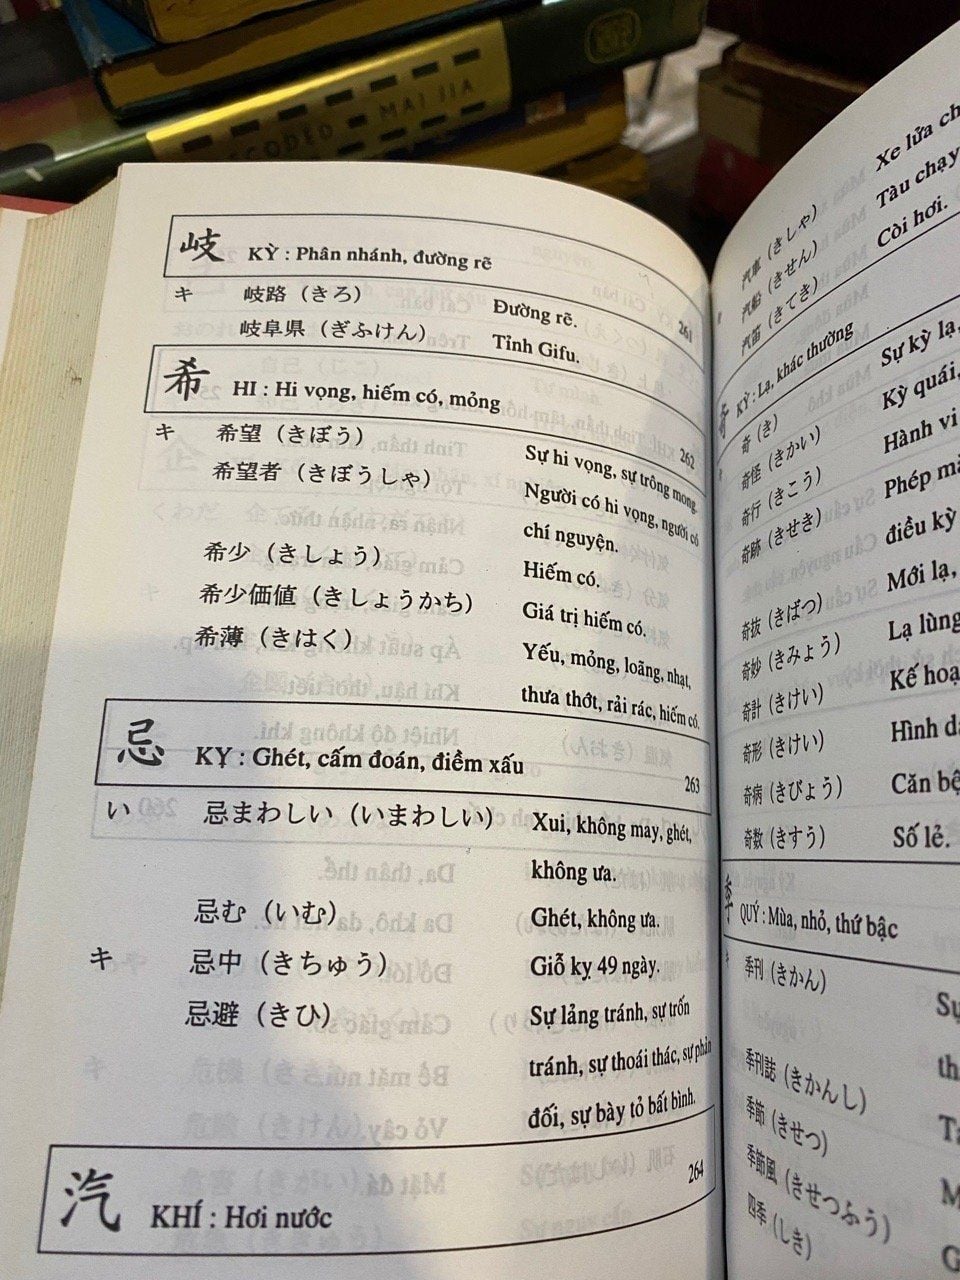 DECODED - MAI JIA
岐 KỲ : Phân nhánh, đường rẽ
261
キ 岐路（きろ） Đường rẽ.
岐阜県（ぎふけん） Tỉnh Gifu.
希 HI : Hi vọng, hiếm có, mỏng
262
キ 希望（きぼう） Sự hi vọng, sự trông mong.
希望者（きぼうしゃ） Người có hi vọng, người có
chí nguyện.
希少（きしょう） Hiếm có.
希少価値（きしょうかち） Giá trị hiếm có.
希薄（きはく） Yếu, mỏng, loãng, nhạt,
thưa thớt, rải rác, hiếm có.
忌 KỴ : Ghét, cấm đoán, điềm xấu
263
い 忌まわしい（いまわしい） Xui, không may, ghét,
không ưa.
忌む（いむ） Ghét, không ưa.
キ 忌中（きちゅう） Giỗ kỵ 49 ngày.
忌避（きひ） Sự lảng tránh, sự trốn
tránh, sự thoái thác, sự phản
đối, sự bày tỏ bất bình.
汽 KHÍ : Hơi nước
264
汽車（きしゃ） Xe lửa
汽船（きせん） Tàu chạy
汽笛（きてき） Còi hơi.
奇 KỲ : Lạ, khác thường
奇（き） Sự kỳ lạ,
奇怪（きかい） Kỳ quái,
奇行（きこう） Hành vi
奇跡（きせき） Phép
điều kỳ
奇抜（きばつ） Mới lạ,
奇妙（きみょう） Lạ lùng
奇計（きけい） Kế
奇形（きけい） Hình
奇病（きびょう） Căn
奇数（きすう） Số lẻ.
季 QUÝ : Mùa, nhỏ, thứ bậc
キ 季刊（きかん）
季刊誌（きかんし）
季節（きせつ）
季節風（きせつふう）
四季（しき）